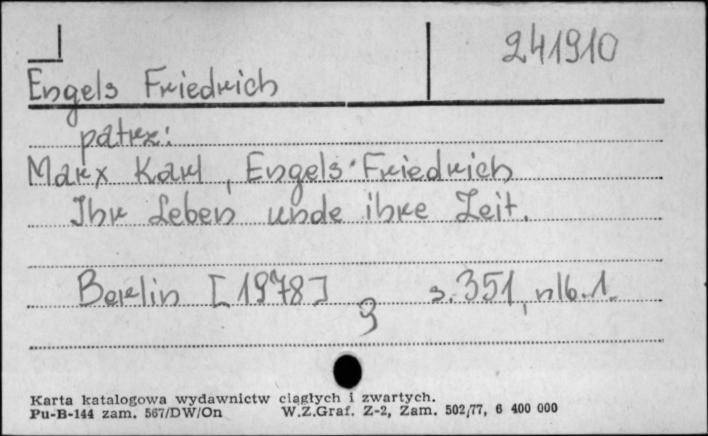 241910
Engels Friedrich
patrz:
Marx Karl, Engels Friedrich
Ihr Leben unde ihre Zeit.
Berlin [1978] s. 351, nlb. 1.
9
Karta katalogowa wydawnictw ciągłych i zwartych.
Pu-B-144 zam. 567/DW/On W.Z.Graf. Z-2, Zam. 502/77, 6 400 000